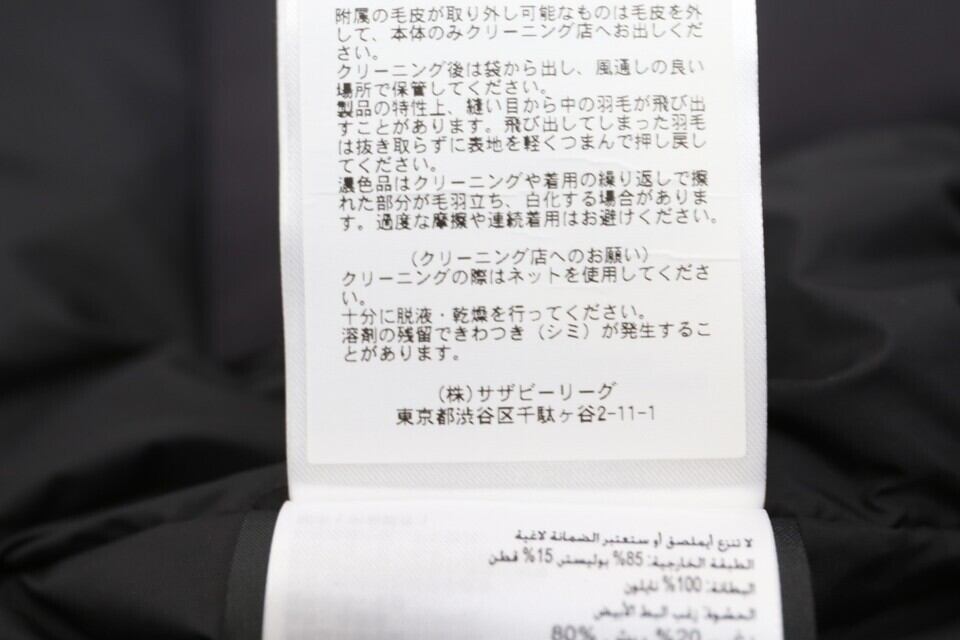 附属の毛皮が取り外し可能なものは毛皮を外
して、本体のみクリーニング店へお出しくだ
さい。
クリーニング後は袋から出し、風通しの良い
場所で保管してください。
製品の特性上、縫い目から中の羽毛が飛び出
すことがあります。飛び出してしまった羽毛
は抜き取らずに表地を軽くつまんで押し戻し
てください。
濃色品はクリーニングや着用の繰り返しで擦
れた部分が毛羽立ち、白化する場合がありま
す。過度な摩擦や連続着用はお避けください。
(クリーニング店へのお願い)
クリーニングの際はネットを使用してくださ
い。
十分に脱液・乾燥を行ってください。
溶剤の残留できわつき（シミ）が発生するこ
とがあります。
(株)サザビーリーグ
東京都渋谷区千駄ヶ谷2-11-1
لا تنزع أيملصق أو ستعتبر الضمانة لاغية
الطبقة الخارجية: 85% بوليستر 15% قطن
البطانة: 100% نايلون
الحشوة: زغب البط الأبيض
80% ريش 20%